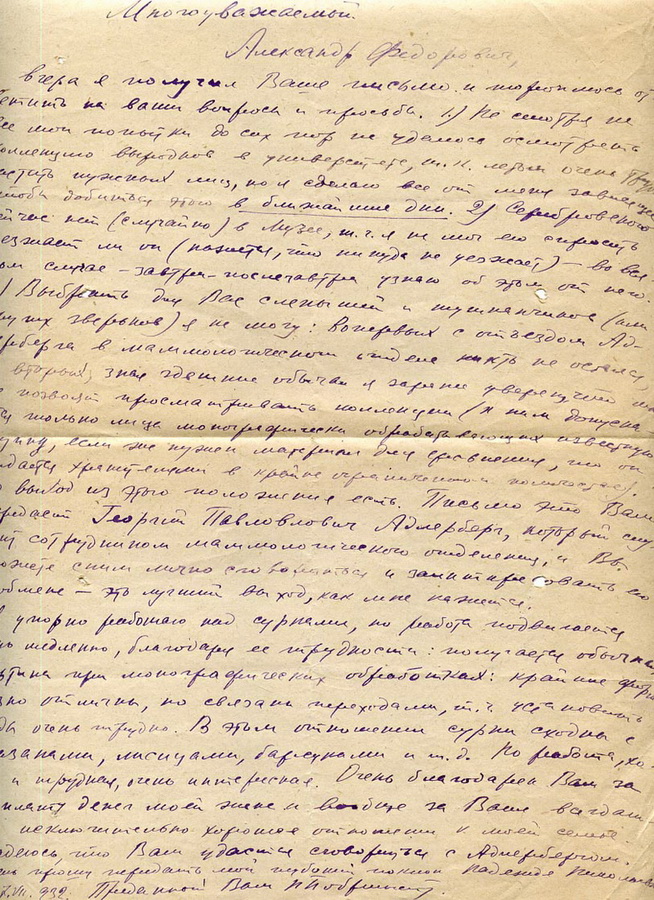 Многоуважаемый
Александр Федорович,
вчера я получил Ваше письмо и тороплюсь от
ветить на ваши вопросы и просьбы. 1) Не смотря на
все мои попытки до сих пор не удалось осмотреть
коллекцию выродков в университете, т. к. летом очень
нужных лиц, но я сделаю все от меня зависящее
чтобы добиться этого в ближайшие дни. 2) Серебровского
сейчас нет (случайно) в Музее, т. ч. я не мог его спросить
уезжает ли он (кажется, что никуда не уезжает) – во вся-
ком случае – завтра-послезавтра узнаю об этом от него.
) Выбрать для Вас слепышей и тушканчиков (или
других зверьков) я не могу: вопервых с отъездом Ад-
лерберга в маммологическом отделе никто не остался,
вторых, зная здешние обычаи я заранее уверен, что
позволят просматривать коллекции (к ним допуска
только лица монографически обрабатывающих известную
группу, если же нужен материал для сравнения, то он
выдается хранителями в крайне ограниченном количестве).
выход из этого положения есть. Письмо это Вам
передаст Георгий Павлович Адлерберг, который
сотрудником маммологического отделения, и Вы
можете с ним лично сговориться и заинтересовать его
обмене – это лучший выход, как мне кажется.
упорно работаю над сурками, но работа подвигается
медленно, благодаря ее трудности: получается обычная
картина при монографических обработках: крайние формы
отличны, но связаны переходами, т. ч. установить
очень трудно. В этом отношении сурки сходны с
лисицами, барсуками и т. д. Но работа, хо-
и трудная, очень интересная. Очень благодарен Вам за
денег моей жене и вообще за Ваше всегдаш
исключительно хорошее отношение к моей семье
надеюсь, что Вам удастся сговориться с Адлербергом.
прошу передать мой глубокий поклон Надежде
VII. 932. Преданный Вам